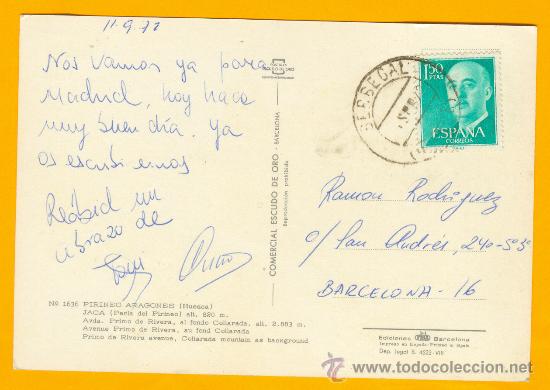 11-9-72
Nos vamos ya para
Madrid, hoy hace
muy buen día. Ya
os escribiremos
Recibid un
abrazo de
COMERCIAL ESCUDO DE ORO - BARCELONA
Reproducción prohibida
BERBEGAL
1'50
PTAS
ESPAÑA
CORREOS
Ramon Rodríguez
c/ San Andrés, 240-5º3ª
BARCELONA-16
Nº 1636 PIRINEO ARAGONES (Huesca)
JACA (Perla del Pirineo) alt. 820 m.
Avda. Primo de Rivera, al fondo Collarada, alt. 2.883 m.
Avenue Primo de Rivera, au fond Collarada
Primo de Rivera avenue, Collarada mountain as background
Ediciones Barcelona
Impreso en España - Printed in Spain
Dep. legal B. 4522-VIII
todocoleccion.net